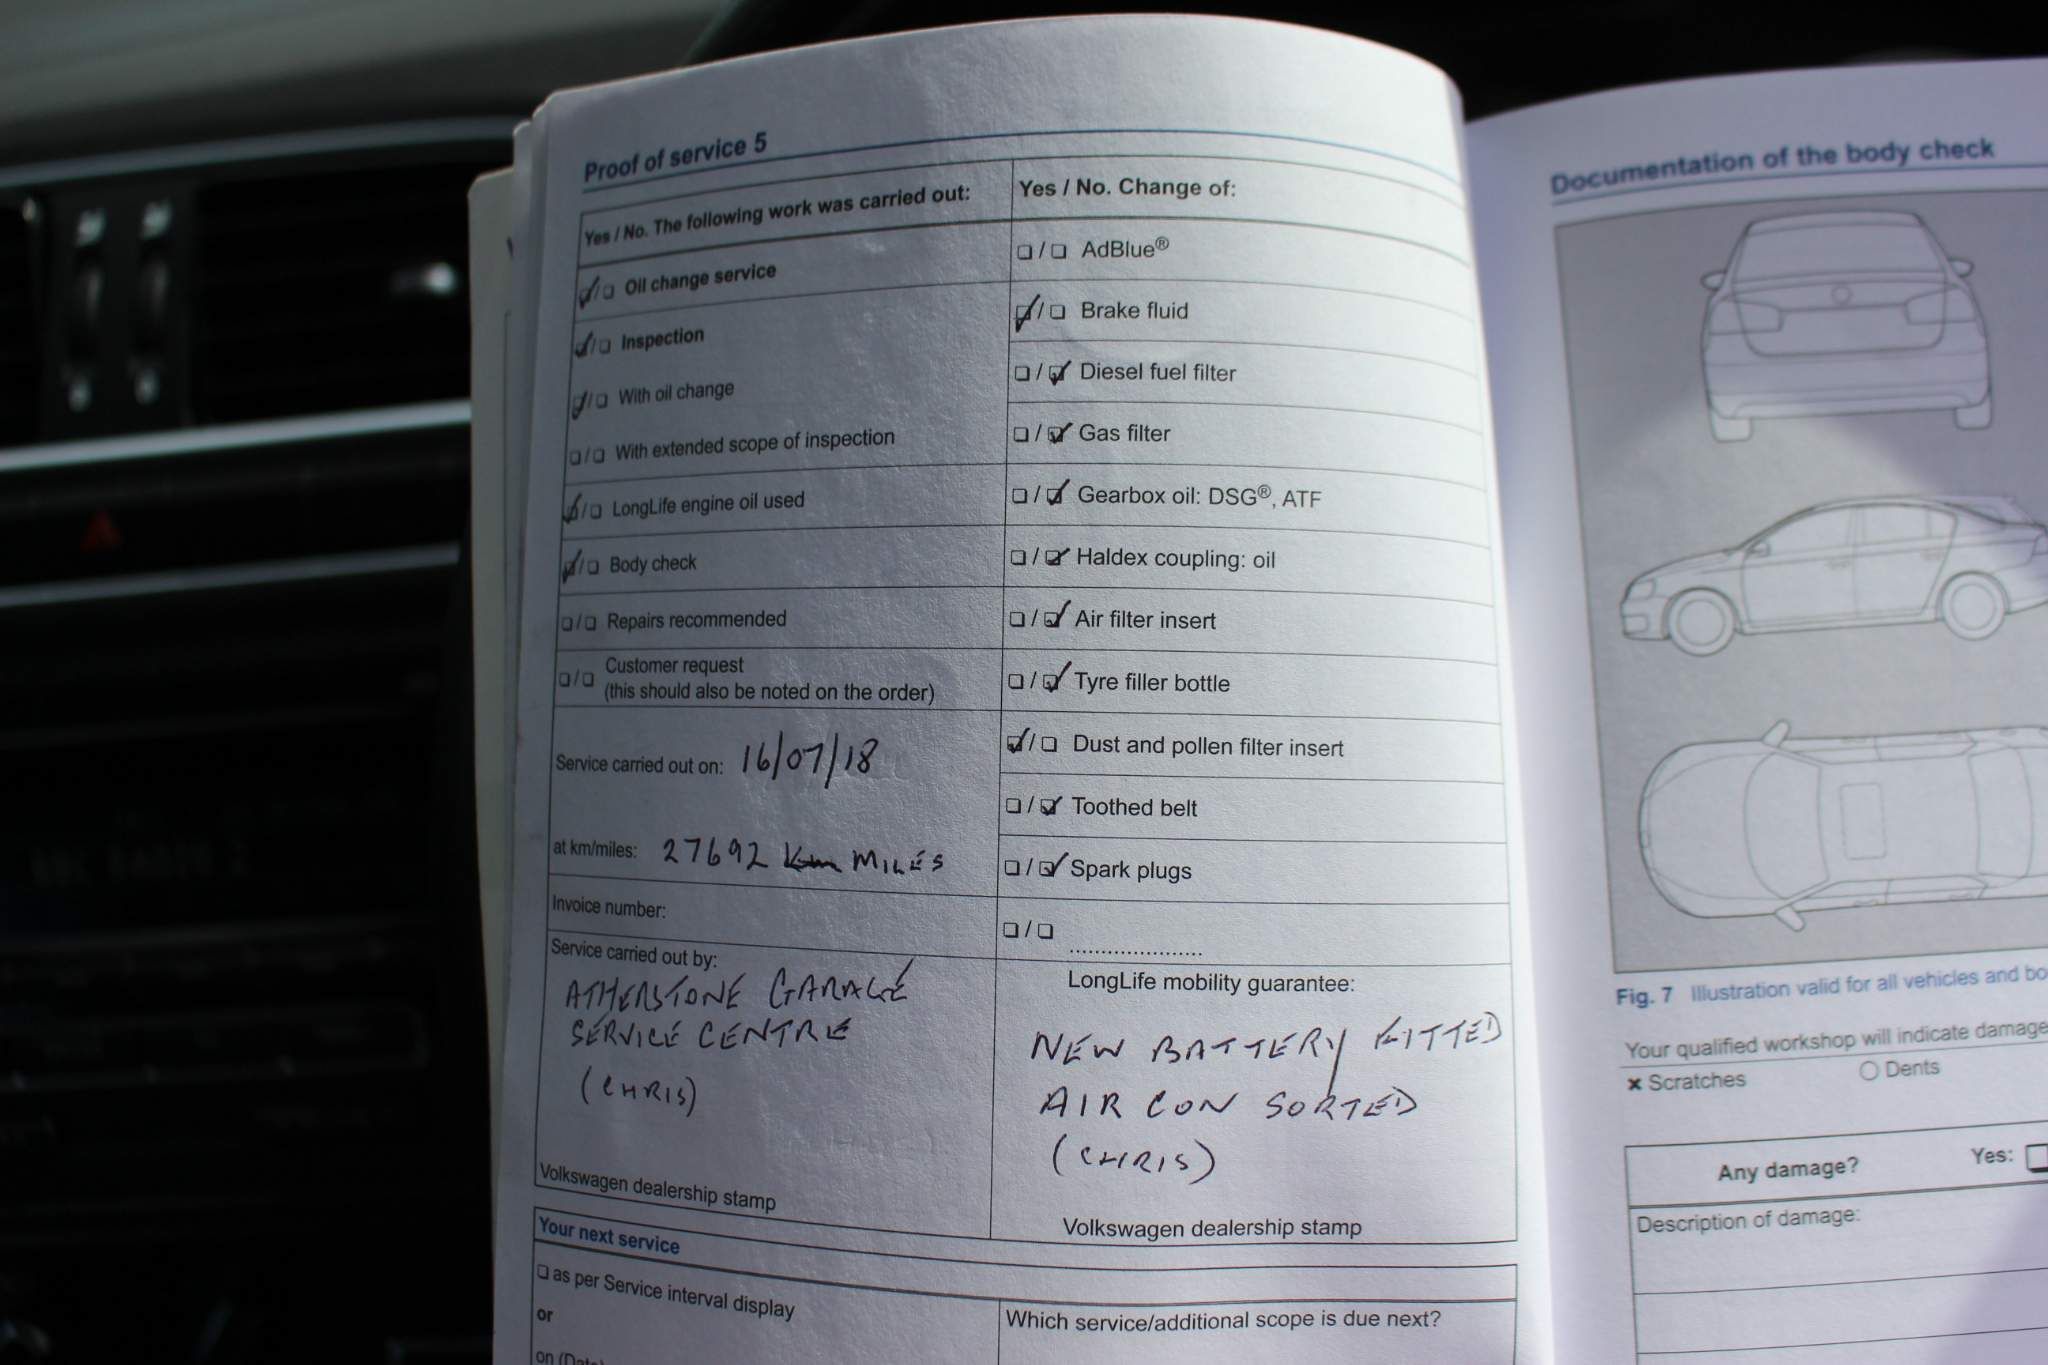 Proof of service 5
Yes / No. The following work was carried out:
☑/❑ Oil change service
☑/❑ Inspection
☑/❑ With oil change
❑/❑ With extended scope of inspection
☑/❑ LongLife engine oil used
☑/❑ Body check
❑/❑ Repairs recommended
❑/❑ Customer request
(this should also be noted on the order)
Service carried out on: 16/07/18
at km/miles: 27692 Km MILES
Invoice number:
Service carried out by:
ATHERSTONE GARAGE
SERVICE CENTRE
(CHRIS)
Volkswagen dealership stamp
Yes / No. Change of:
❑/❑ AdBlue®
☑/❑ Brake fluid
❑/☑ Diesel fuel filter
❑/☑ Gas filter
❑/☑ Gearbox oil: DSG®, ATF
❑/☑ Haldex coupling: oil
❑/☑ Air filter insert
❑/☑ Tyre filler bottle
☑/❑ Dust and pollen filter insert
❑/☑ Toothed belt
❑/☑ Spark plugs
❑/❑ ......................
LongLife mobility guarantee:
NEW BATTERY FITTED
AIR CON SORTED
(CHRIS)
Volkswagen dealership stamp
Your next service
❑ as per Service interval display
or
on (Date)
Which service/additional scope is due next?
Documentation of the body check
Fig. 7 Illustration valid for all vehicles and bo
Your qualified workshop will indicate damage
× Scratches
○ Dents
Any damage? Yes: ❑
Description of damage: